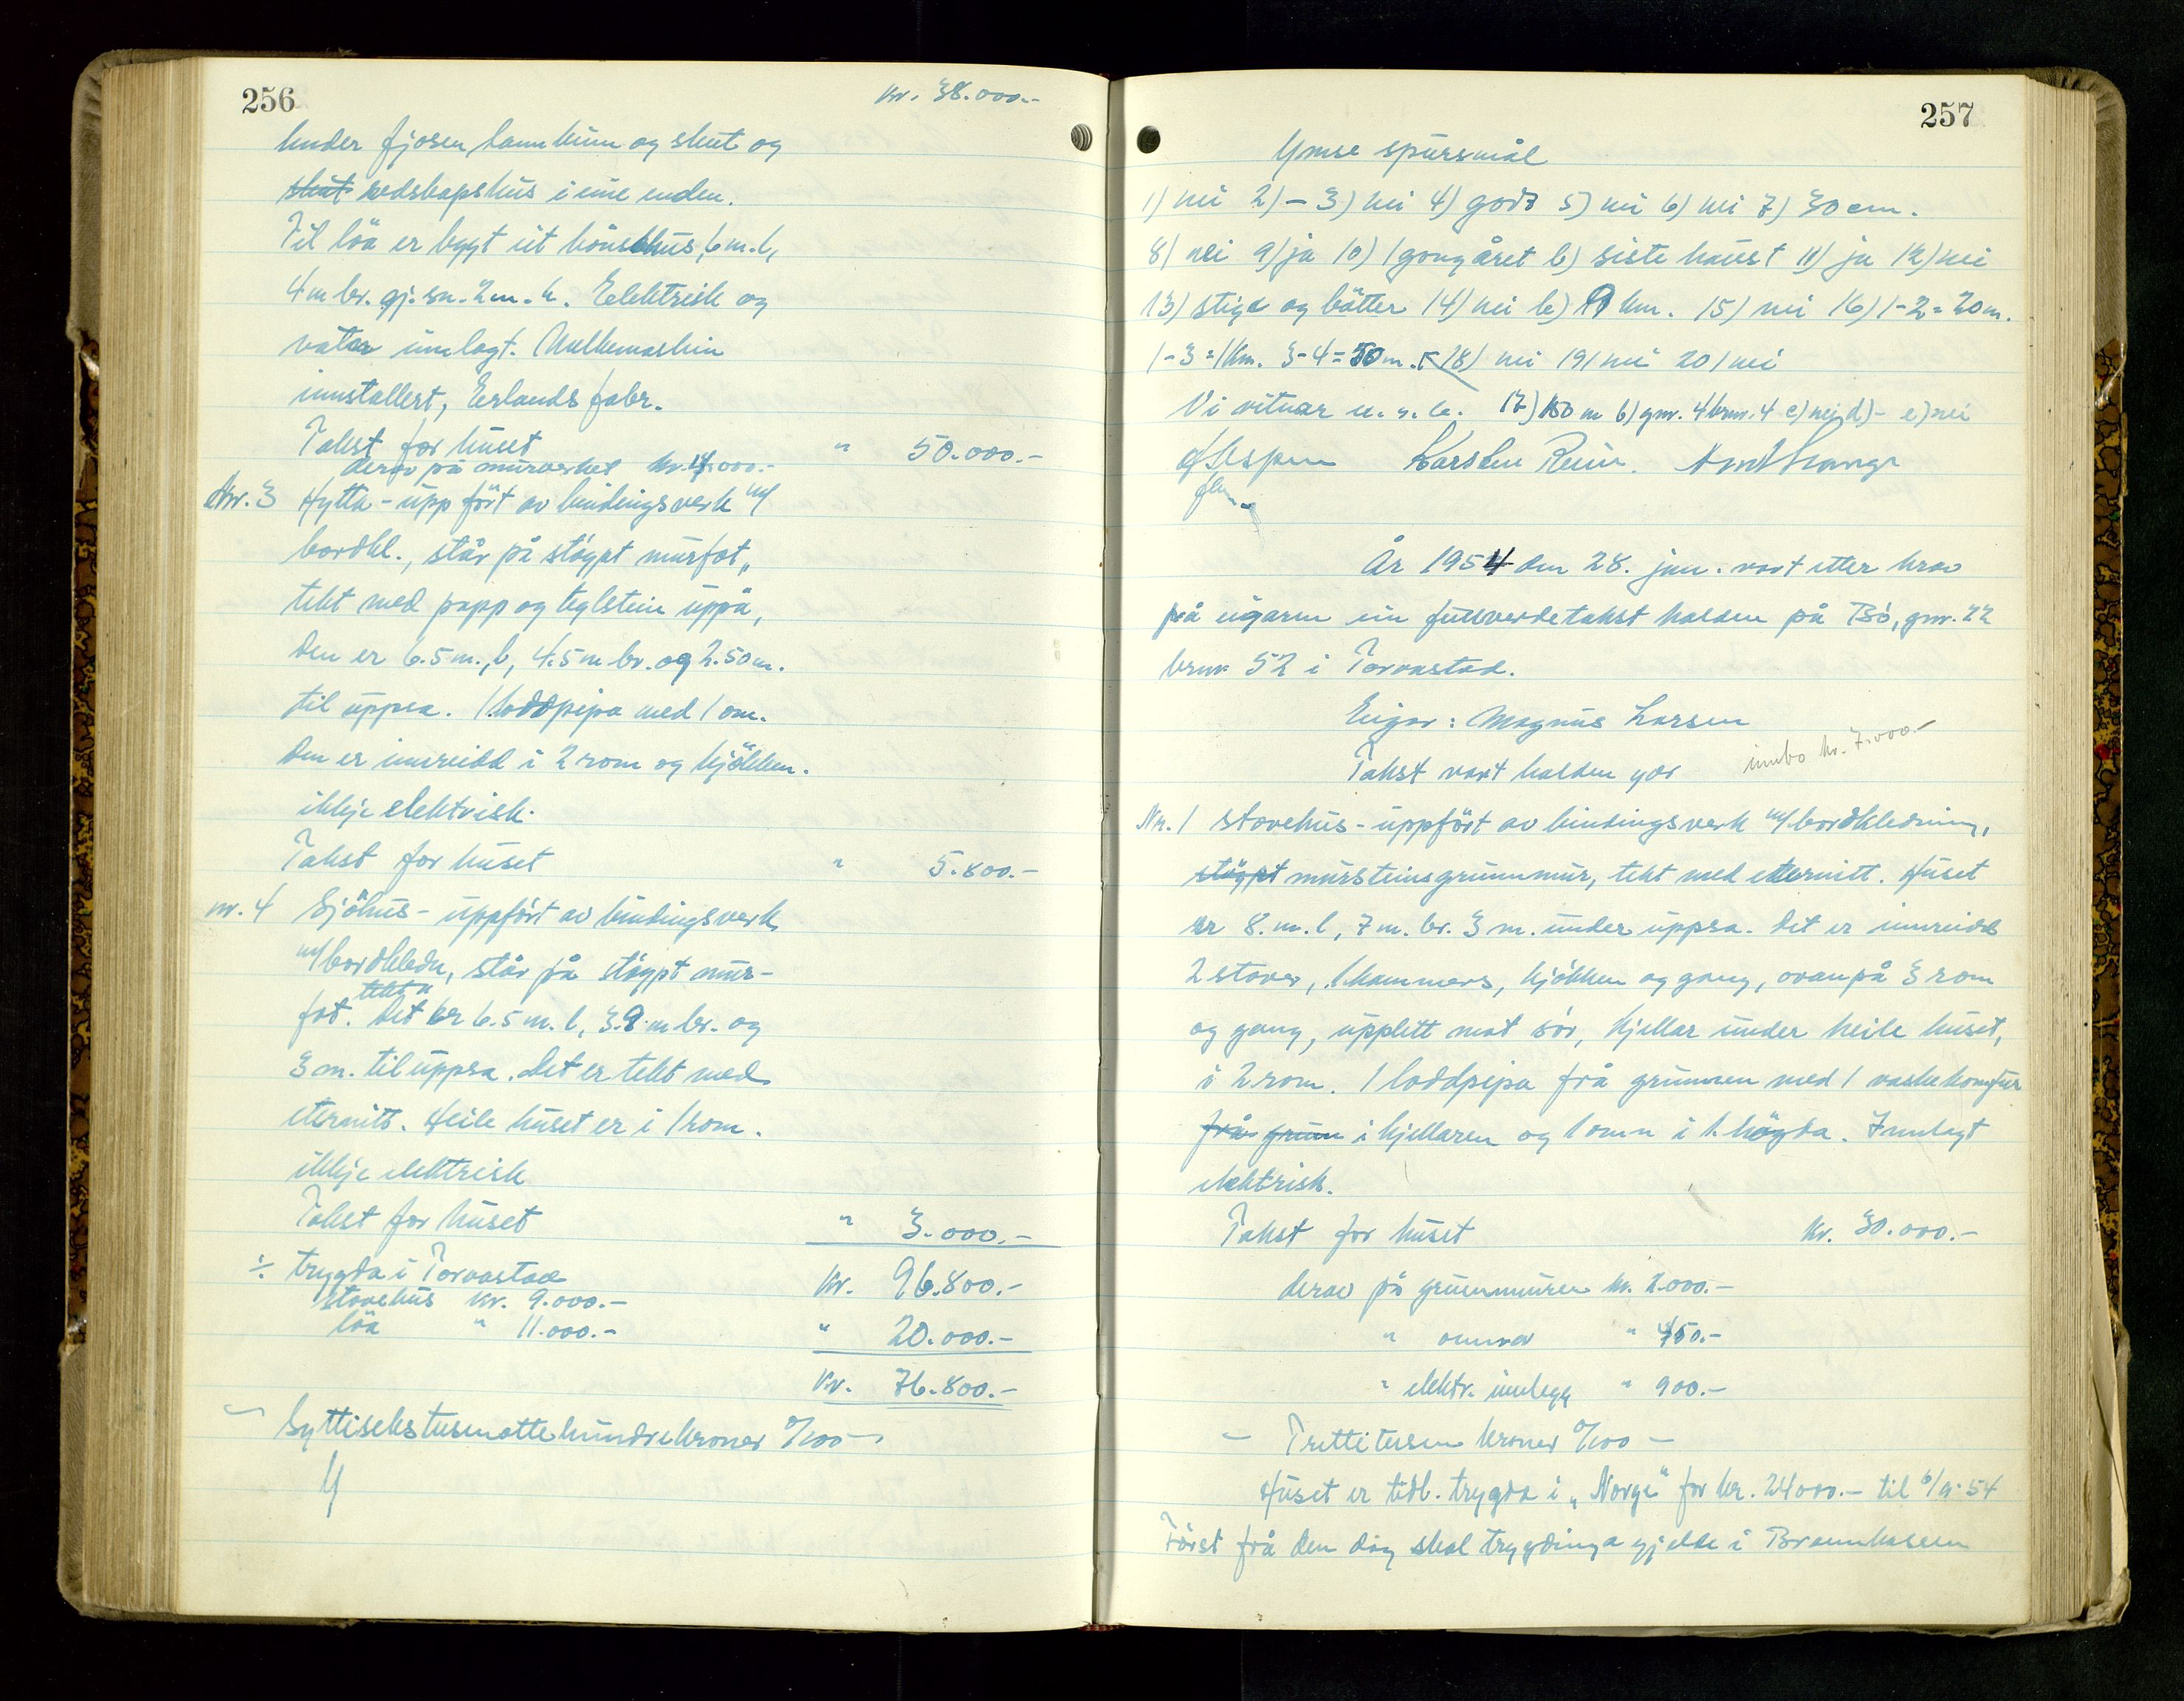 256
kr. 38.000.-
Under fjosen landkum og skut og
skut redskapshus i eine enden.
Til löa er bygt út hönsehus, 6 m. l,
4 m br. gj.sn. 2 m. h. Eelektrisk og
vatn innlagt. Mulkemaskin
innstallert, Erlands fabr.
Takst for huset " 50.000.-
derav på murverket kr. 4.000.-
Nr. 3 Hytta - uppfört av bindingsverk m/
bordkl., står på stöypt murfot,
tekt med papp og teglstein uppå,
den er 6.5 m., l, 4.5 m br. og 2.50 m.
til uppsa. 1 loddpipa med 1 om.
Den er innreidd i 2 rom og kjökken.
ikkje elektrisk.
Takst for huset " 5.800.-
nr. 4 Sjöhus - uppfört av bindingsverk
m/bordkledn, står på stöypt mur-
fot. Det er 6.5 m. l, 3.8 m br. og
3 m. til uppsa. Det er tekt med
eternitt. Heile huset er i 1 rom.
ikkje elektrisk
Takst for huset " 3.000.-
÷ trygda i Torvastad kr. 96.800.-
stovehus kr. 9.000.-
löa " 11.000.- " 20.000.-
kr. 76.800.-
- Syttisekstusenottehundrekroner %00 -
257
Ymse spursmål
1) nei 2) - 3) nei 4) godt 5) nei 6) nei 7) 30 cm.
8) nei 9) ja 10) 1 gong året b) siste haust 11) ja 12) nei
13) stige og bötter 14) nei b) 9 km. 15) nei 16) 1-2 = 20 m.
1-3 = 1 km. 3-4 = 50 m. 18) nei 19) nei 20) nei
Vi vitnar u. s. b. 17) 150 m b) gnr. 4 brnr. 4 c) nei d) - e) nei
Espen Karsten Reim.
År 1954 den 28. jan. vart etter krav
på eigaren ein fullverdetakst halden på Bö, gnr. 22
brnr 52 i Torvastad.
Eigar: Magnus Larsen
Takst vart halden yver
innbo kr. 7.000.-
Nr. 1 Stovehus - uppfört av bindingsverk m/bordkledning,
stöypt mursteinsgrunnmur, tekt med etternitt. Huset
er 8. m. l, 7 m. br. 3 m. under uppsa. Det er innreidd
2 stover, 1 kammers, kjökken og gang, ovanpå 3 rom
og gang, upplett mot sör, kjellar under heile huset,
i 2 rom. 1 loddpipa frå grunnen med 1 vaskekomfur
frå grunn i kjellaren og 1 omn i 1. högda. Innlagt
elektrisk.
Takst for huset kr. 30.000.-
derav på grunnmuren kr. 2.000.-
" omner " 450.-
" elektr. innlegg " 900.-
- Trettitusen kroner %00 -
Huset er tidl. trygda i "Norge" for kr. 24000.- til 6/9-54
Först frå den dag skal trygdinga gjelde i Brannkassen